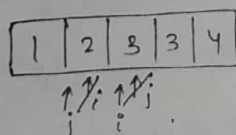 1 2 3 3 4
i i j
j i